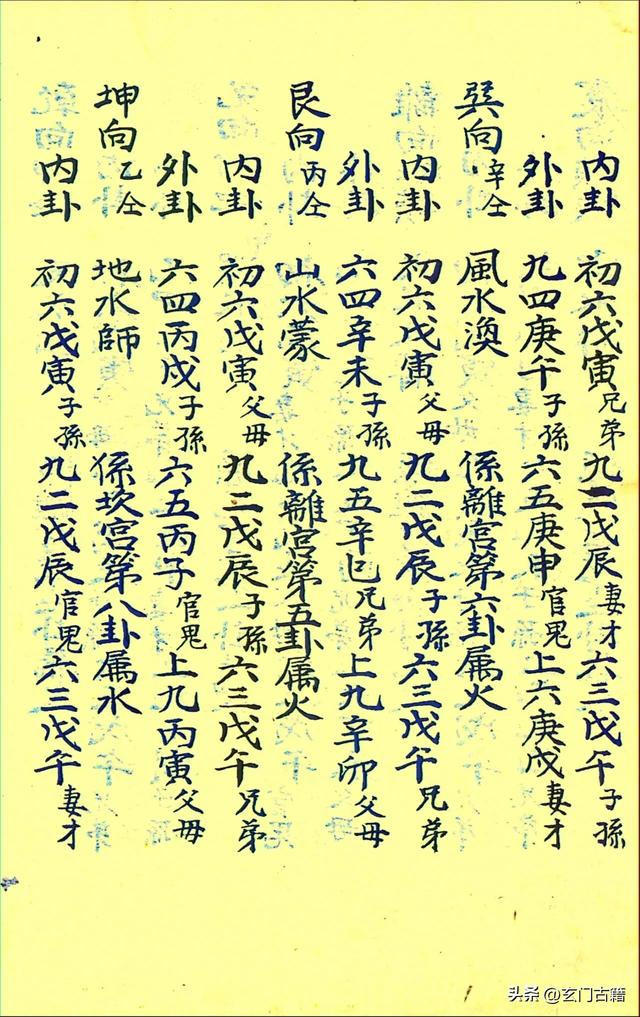 內卦 初六戊寅兄弟 九二戊辰妻才 六三戊午子孫
外卦 九四庚午子孫 六五庚申官鬼 上六庚戌妻才
巽向辛仝 風水渙 係離宮第六卦属火
內卦 初六戊寅父母 九二戊辰子孫 六三戊午兄弟
外卦 六四辛未子孫 九五辛巳兄弟 上九辛卯父母
艮向丙仝 山水蒙 係離宮第五卦属火
內卦 初六戊寅父母 九二戊辰子孫 六三戊午兄弟
外卦 六四丙戌子孫 六五丙子官鬼 上九丙寅父母
坤向乙仝 地水師 係坎宮第八卦属水
內卦 初六戊寅子孫 九二戊辰官鬼 六三戊午妻才
头条 @玄门古籍